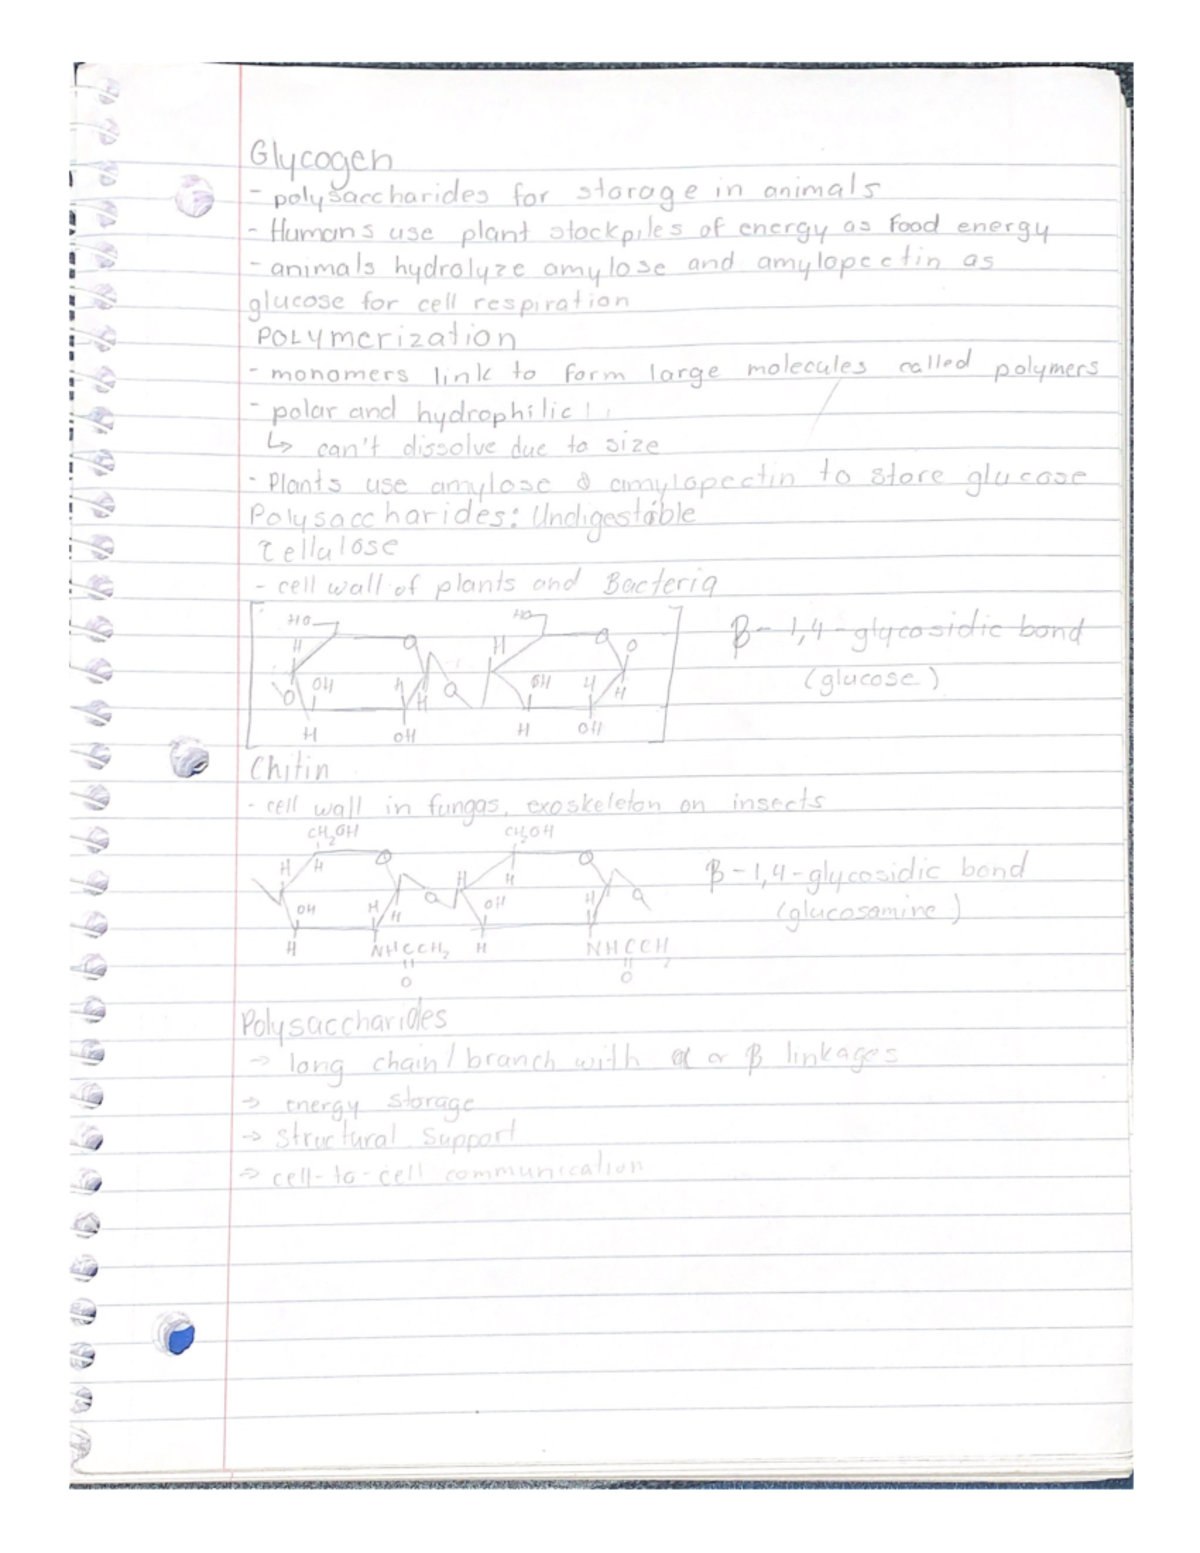 Glycogen
- polysaccharides for storage in animals
- Humans use plant stockpiles of energy as food energy
- animals hydrolyze amylose and amylopectin as
glucose for cell respiration
Polymerization
- monomers link to form large molecules called polymers
- polar and hydrophilic!!
↳ can't dissolve due to size
- Plants use amylose & amylopectin to store glucose
Polysaccharides: Undigestable
Cellulose
- cell wall of plants and Bacteria
HO HO
H O H O O
O OH H H O OH H H
H OH H OH
β-1,4-glycosidic bond
(glucose)
Chitin
- cell wall in fungas, exoskeleton on insects
CH2OH CH2OH
H H O H H O
OH H H O OH H O
H NHCCH3 H NHCCH3
O O
β-1,4-glycosidic bond
(glucosamine)
Polysaccharides
→ long chain/branch with α or β linkages
→ energy storage
→ structural support
→ cell-to-cell communication